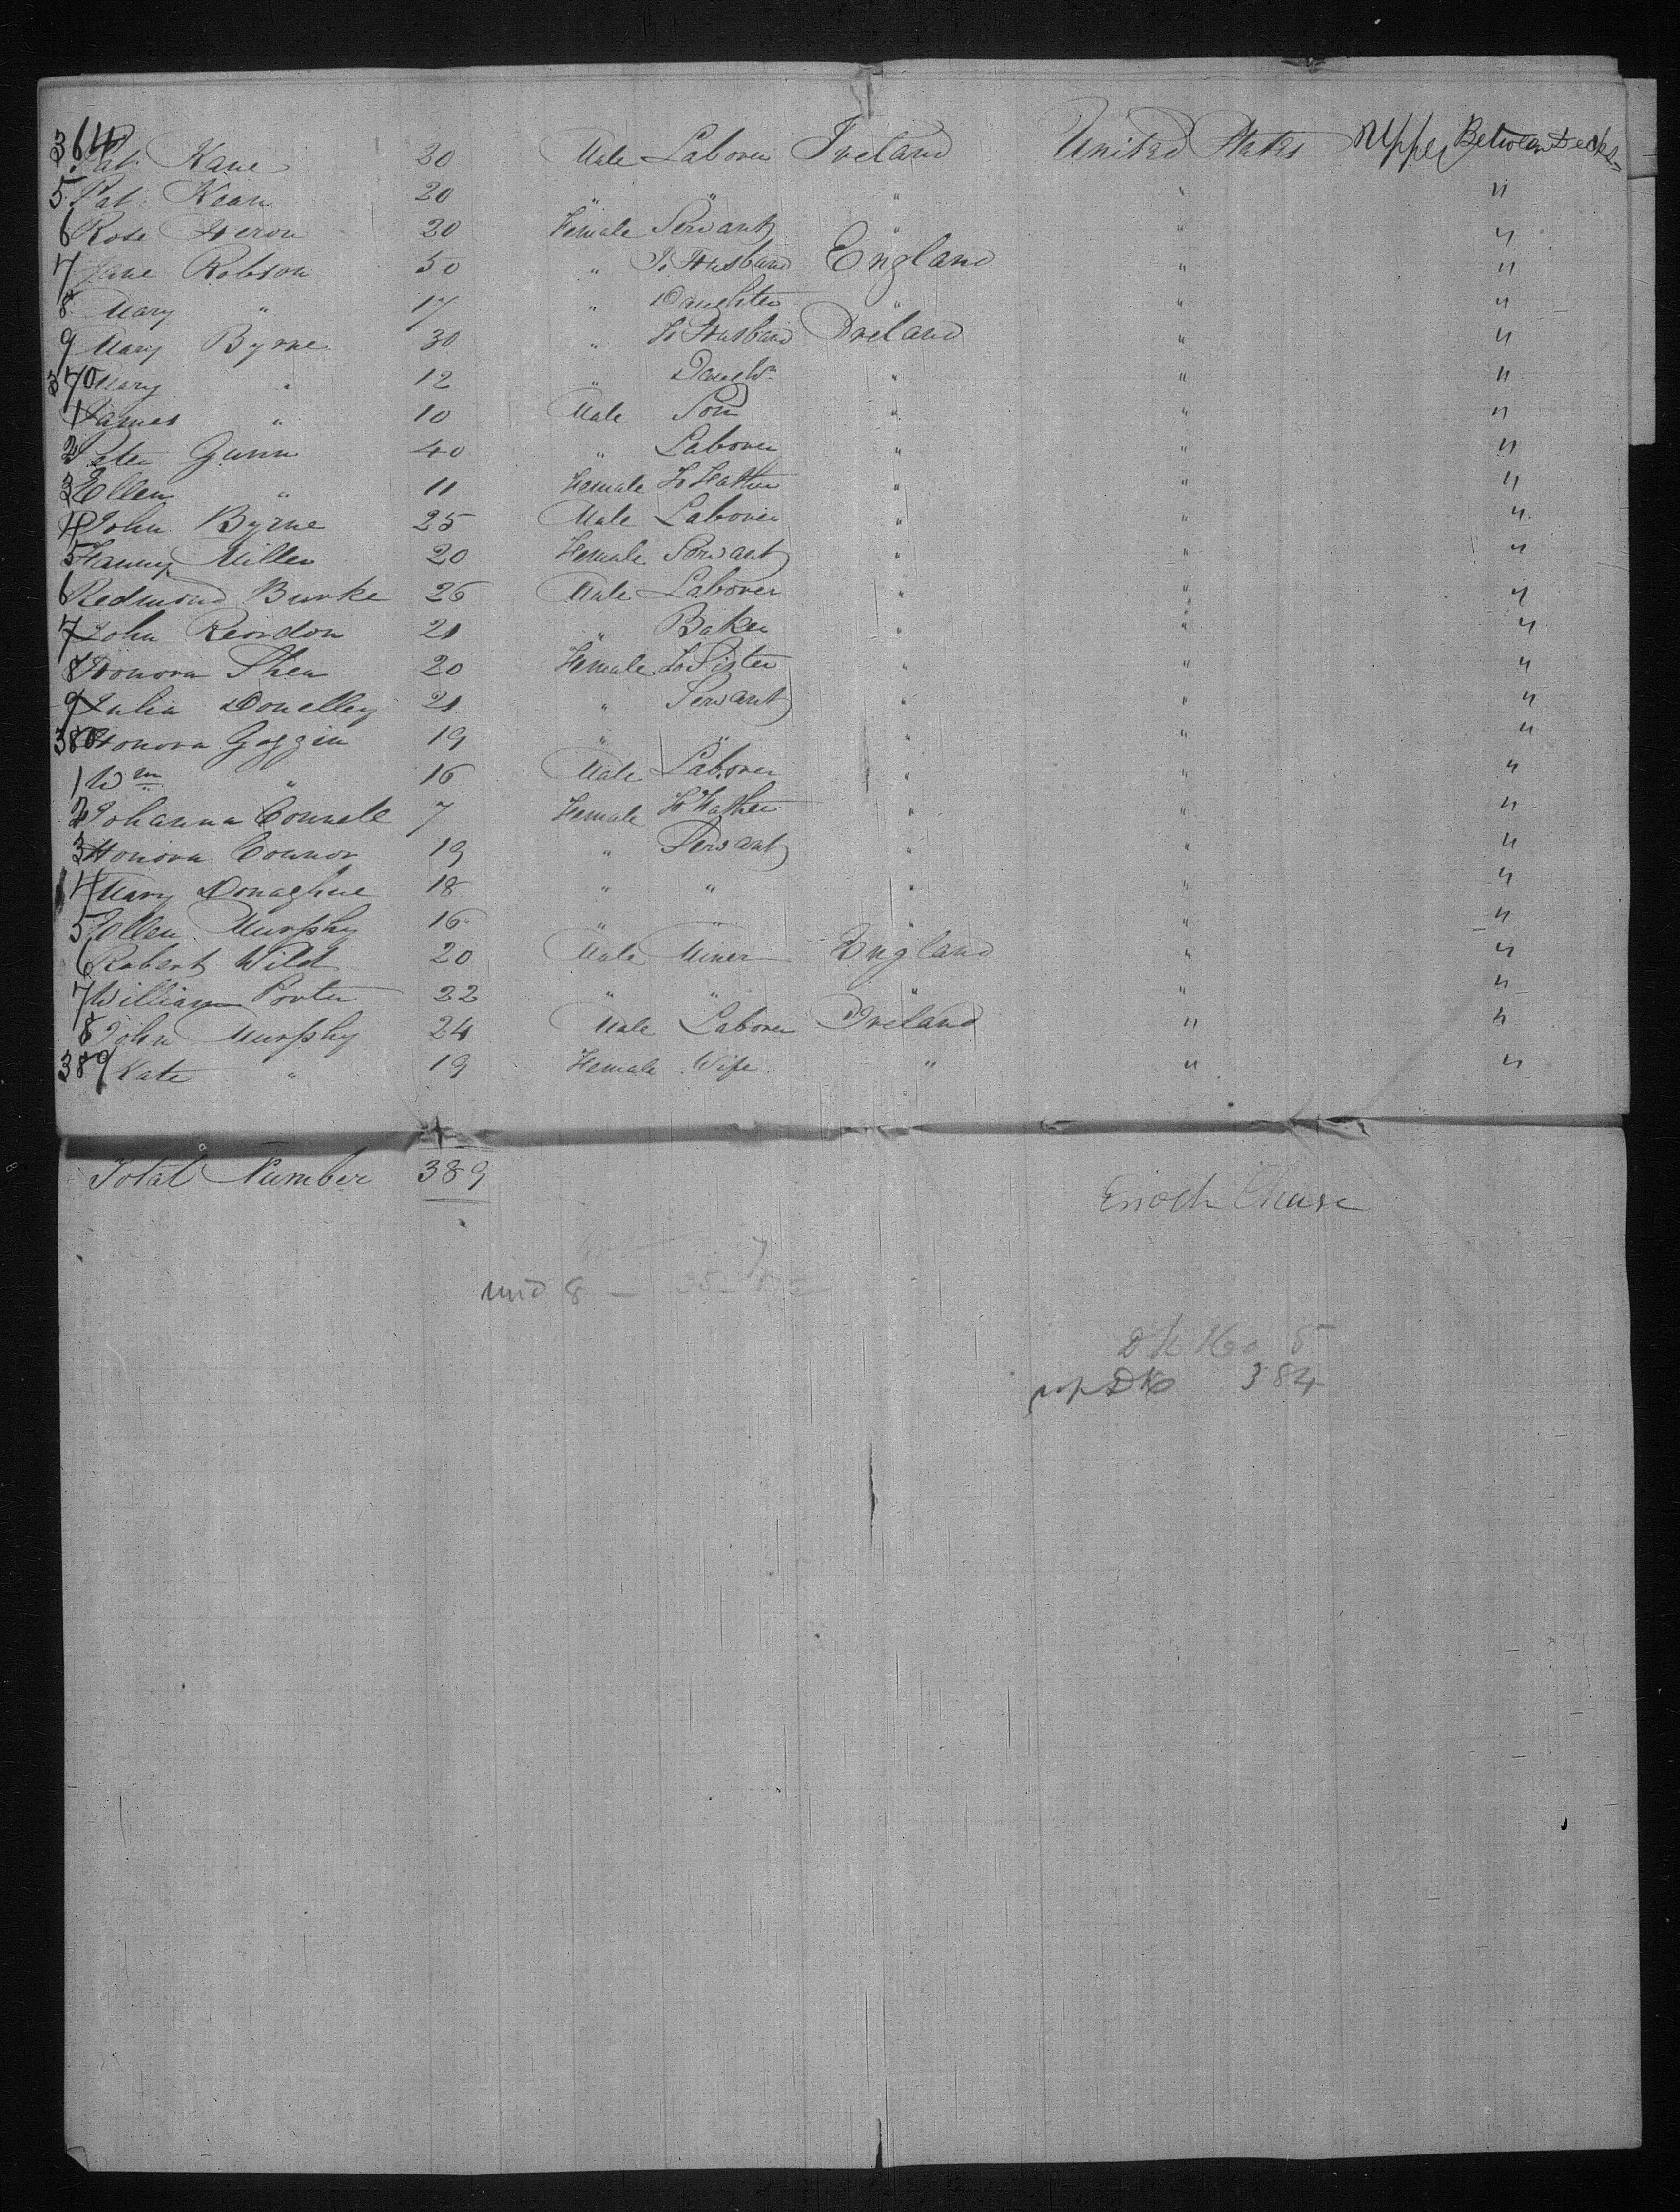 364 Pat. Kane 20 Male Laborer Ireland United States Upper Between Decks
5 Pat. Kean 20 " " " " "
6 Rose Heron 20 Female Servant " " "
7 Jane Robson 50 " To Husband England " "
8 Mary " 17 " Daughter " " "
9 Mary Byrne 30 " To Husband Ireland " "
370 Mary " 12 " Daughtr " " "
1 James " 10 Male Son " " "
2 Peter Gunn 40 " Laborer " " "
3 Ellen " 11 Female To Father " " "
4 John Byrne 25 Male Laborer " " "
5 Fanny Miller 20 Female Servant " " "
6 Redmond Burke 26 Male Laborer " " "
7 John Reordon 21 " Baker " " "
8 Honora Shea 20 Female To Sister " " "
9 Julia Donelley 21 " Servant " " "
380 Honora Goggin 19 " " " " "
1 Wm " 16 Male Laborer " " "
2 Johanna Connell 7 Female To Father " " "
3 Honora Connor 19 " Servant " " "
4 Mary Donaghue 18 " " " " "
5 Ellen Murphy 16 " " " " "
6 Robert Wild 20 Male Miner England " "
7 William Porter 22 " " " " "
8 John Murphy 24 Male Laborer Ireland " "
389 Kate " 19 Female Wife " " "
Total Number 389
Enoch Chase
8 — 35
5
384